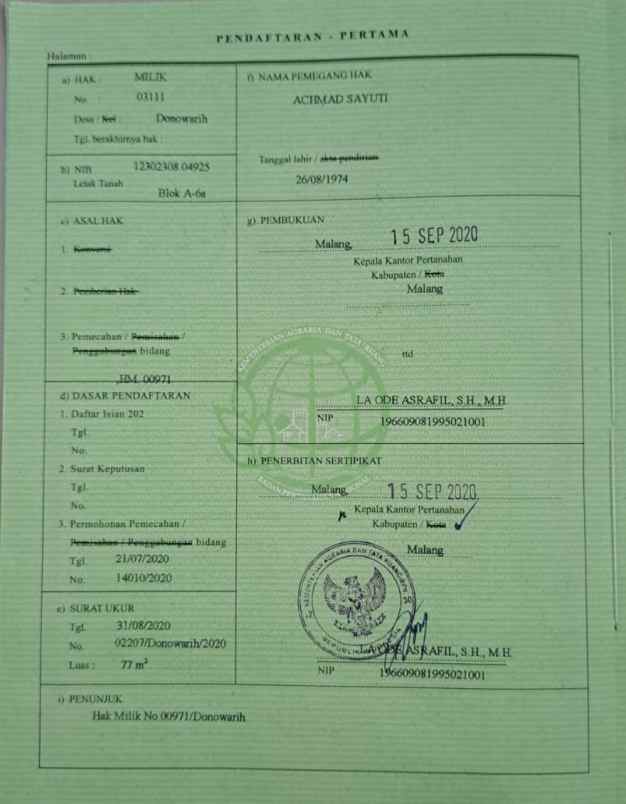 PENDAFTARAN - PERTAMA
Halaman :
a) HAK : MILIK
No. : 03111
Desa / Kel : Donowarih
Tgl. berakhirnya hak :
b) NIB 12302308.04925
Letak Tanah
Blok A-6a
c) ASAL HAK
1. Konversi
2. Pemberian Hak
3. Pemecahan / Pemisahan /
Penggabungan bidang
HM. 00971
d) DASAR PENDAFTARAN
1. Daftar Isian 202
Tgl.
No.
2. Surat Keputusan
Tgl.
No.
3. Permohonan Pemecahan /
Pemisahan / Penggabungan bidang
Tgl. 21/07/2020
No. 14010/2020
e) SURAT UKUR
Tgl. 31/08/2020
No. 02207/Donowarih/2020
Luas : 77 m²
f) NAMA PEMEGANG HAK
ACHMAD SAYUTI
Tanggal lahir / akta pendirian
26/08/1974
g) PEMBUKUAN
Malang, 15 SEP 2020
Kepala Kantor Pertanahan
Kabupaten / Kota
Malang
ttd
LA ODE ASRAFIL, S.H., M.H
NIP 196609081995021001
h) PENERBITAN SERTIPIKAT
Malang, 15 SEP 2020
Kepala Kantor Pertanahan
Kabupaten / Kota
Malang
KEMENTERIAN AGRARIA DAN TATA RUANG
REPUBLIK INDONESIA
LA ODE ASRAFIL, S.H., M.H.
NIP 196609081995021001
i) PENUNJUK
Hak Milik No 00971/Donowarih
KEMENTERIAN AGRARIA DAN TATA RUANG
BADAN PERTANAHAN NASIONAL